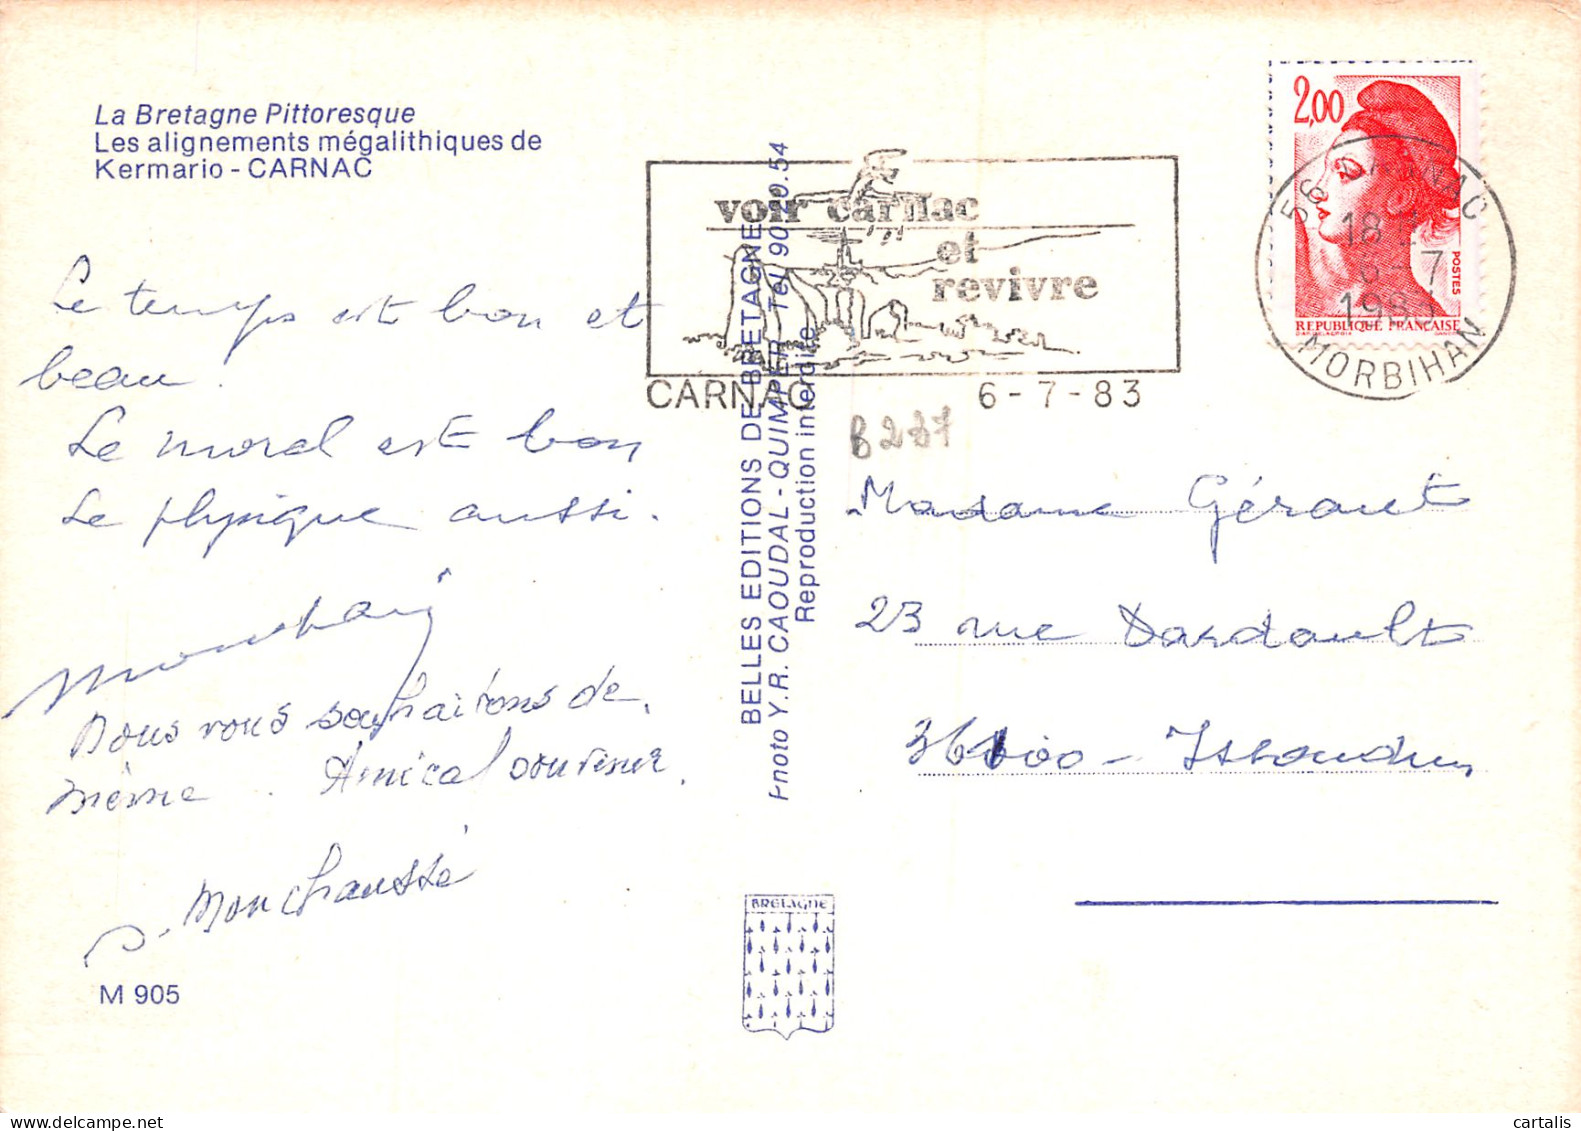 La Bretagne Pittoresque
Les alignements mégalithiques de
Kermario - CARNAC
Le temps est bon et
beau.
Le moral est bon
Le physique aussi.
Nous vous souhaitons de
même. Amical souvenir.
Monchaussé
M 905
BELLES EDITIONS DE BRETAGNE
Photo Y.R. CAOUDAL - QUIMPER Tel 90.10.54
Reproduction interdite
BRETAGNE
voir carnac
et
revivre
CARNAC 6-7-83
2,00
POSTES
REPUBLIQUE FRANÇAISE
56 CARNAC
18
6-7
1983
MORBIHAN
B237
Madame Géraut
23 rue Dardault
36100 - Issoudun
cartalis